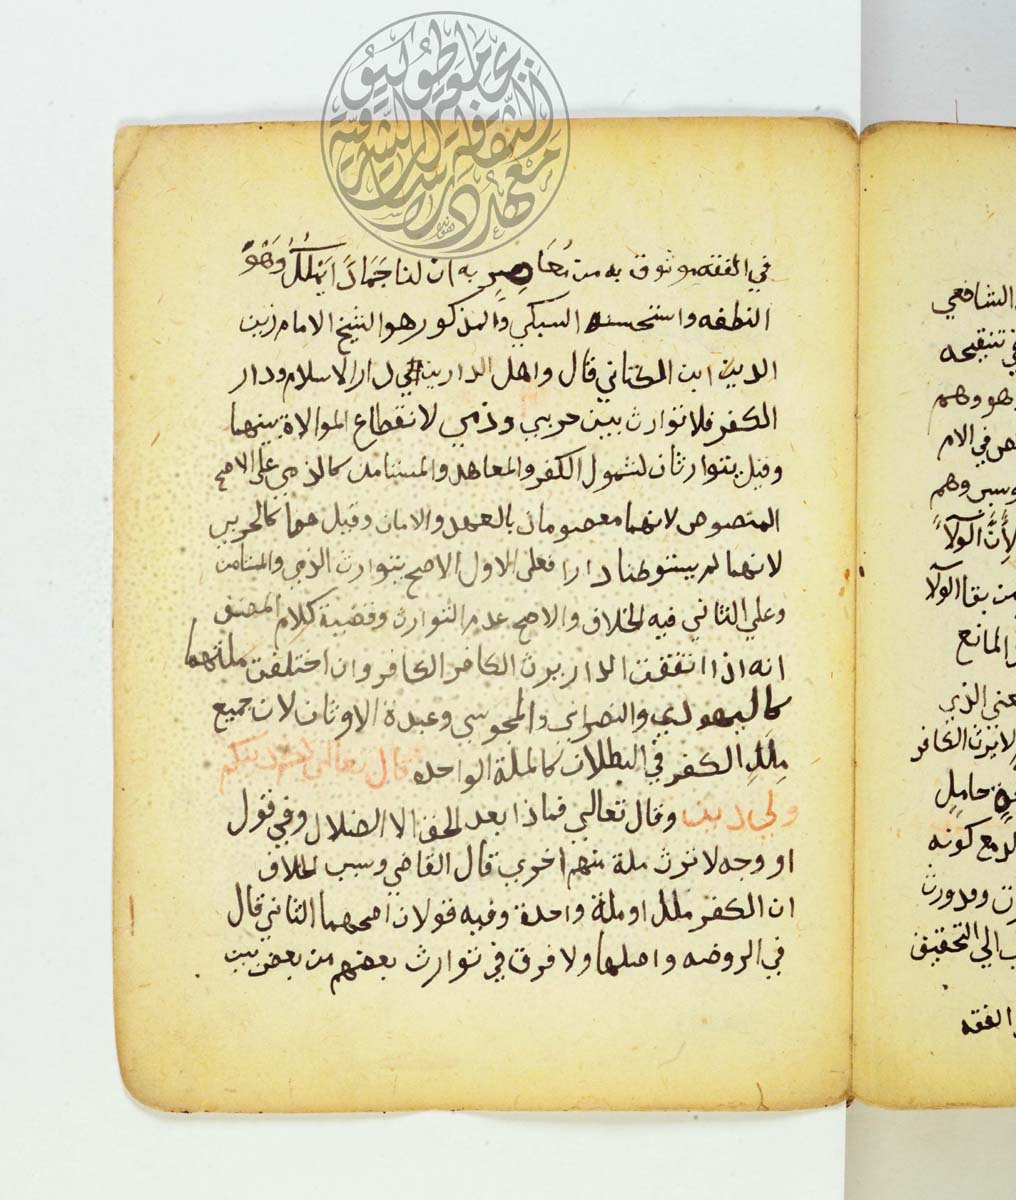 في الفقه موثوق به من معاصريه ان لنا جَمَادًا يَملكُ وَهُوَ
النطفه واستحسنه السبكي والمذكور هو الشيخ الامام زين
الدين ابن الكتاني قال واهل الدارين في دار الاسلام ودار
الكفر فلا توارث بين حربي وذمي لانقطاع الموالاة بينهما
وقيل يتوارثان لشمول الكفر والمعاهد والمستامن كالذمي على الاصح
المنصوص لانهما معصومان بالعهد والامان وقيل هما كالحربي
لانهما لم يستوطنا دارا فعلى الاول الاصح يتوارث الذمي والمستامن
وعلي الثاني فيه الخلاف والاصح عدم التوارث وقضية كلام المصنف
انه اذا اتفقت الدار يرث الكافر الكافر وان اختلفت ملتهما
كاليهودي والنصراني والمجوسي وعبدة الاوثان لان جميع
مِللِ الكفر في البطلان كالملة الواحده قال تعالى لكم دينكم
ولي دين وقال تعالي فماذا بعد الحق الا الضلال وفي قول
او وجه لا ترث ملة منهم اخري قال القاضي وسبب الخلاف
ان الكفر ملل او ملة واحدة وفيه قولان اصحهما الثاني قال
في الروضه واصلها ولا فرق في توارث بعضهم من بعض بين
الشافعي
في تنقيحه
وهو وهم
في الام
وسبر وهم
لِأَنَّ الوَلآءَ
من بقا الولآ
المانع
يعني الذي
لا يرث الكافر
حاملٍ
مع كونه
الي التحقيق
الفقه